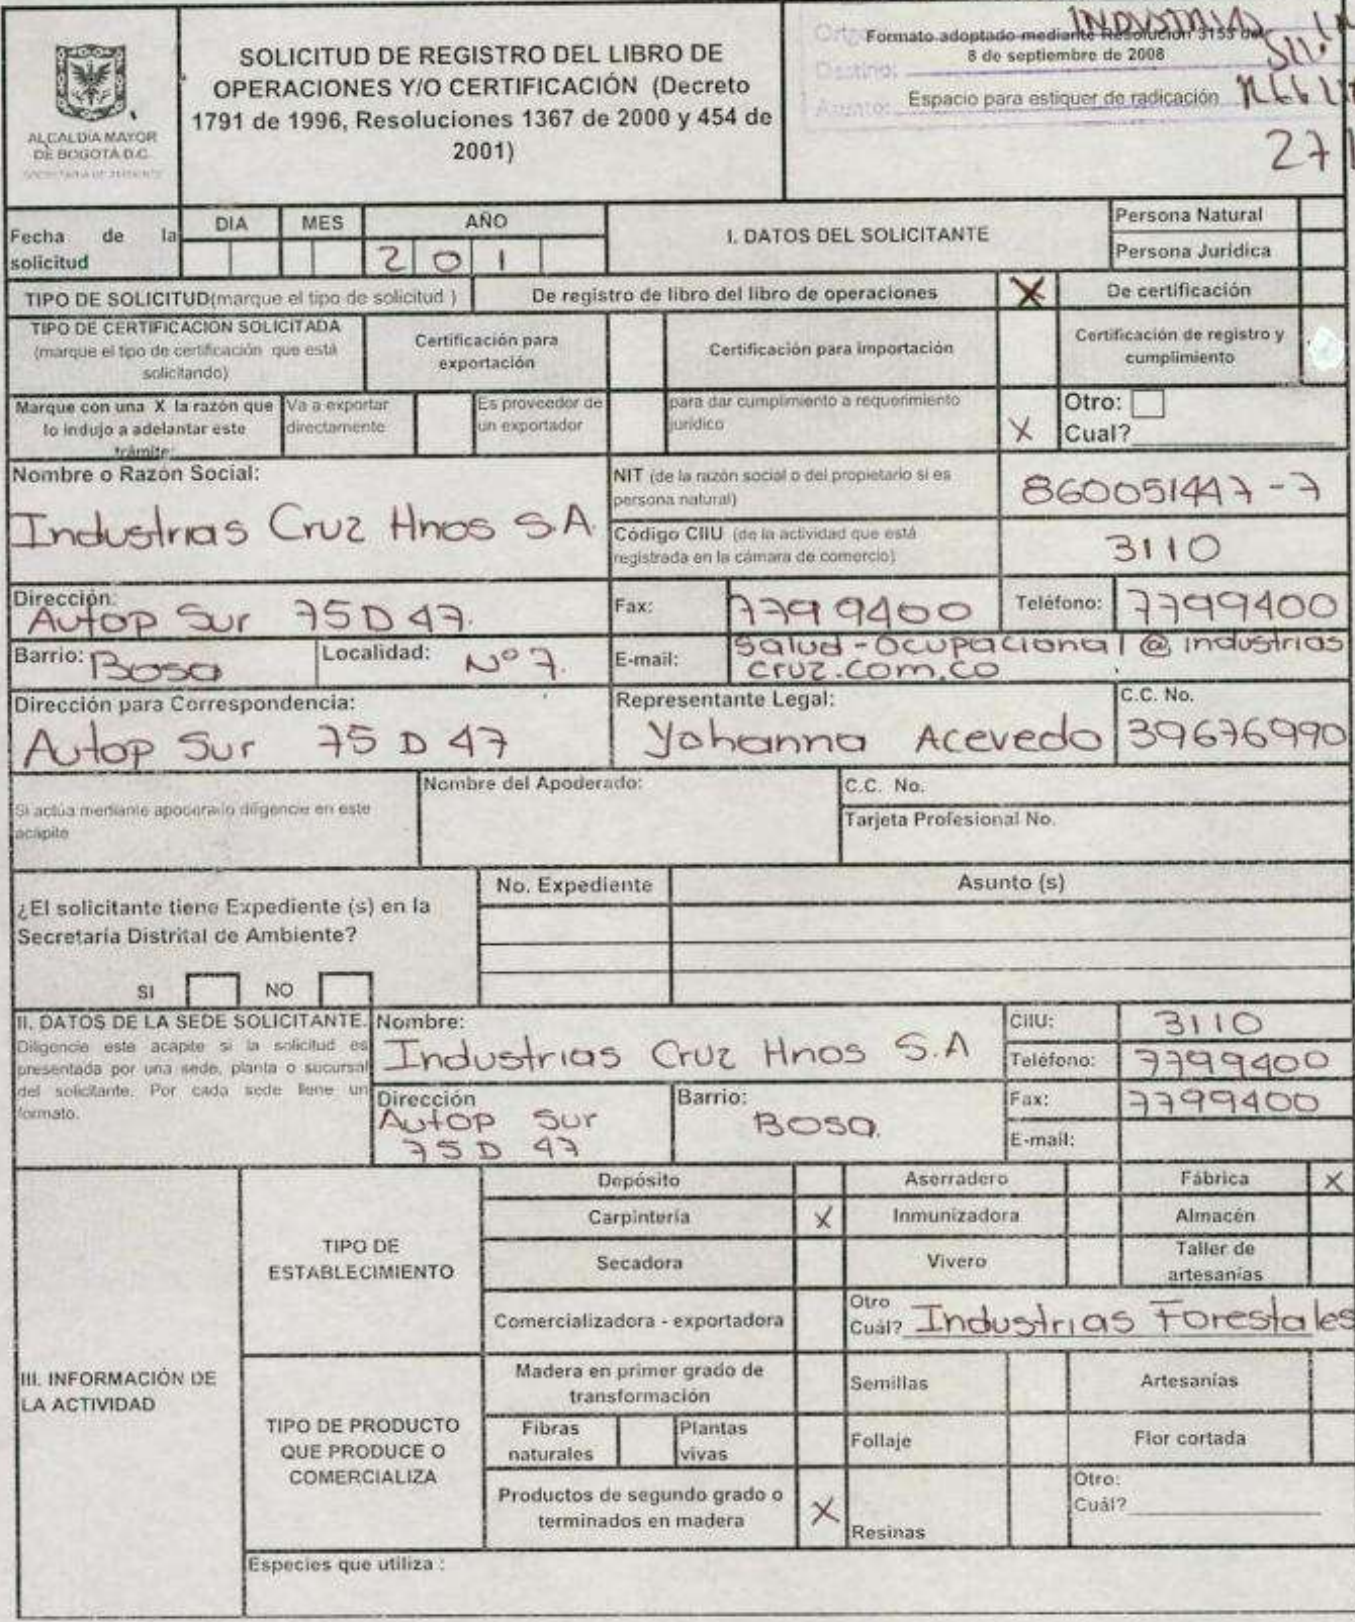 ALCALDIA MAYOR
DE BOGOTÁ D.C.
SOLICITUD DE REGISTRO DEL LIBRO DE
OPERACIONES Y/O CERTIFICACIÓN (Decreto
1791 de 1996, Resoluciones 1367 de 2000 y 454 de
2001)
INDUSTRIAS
Formato adoptado mediante Resolución 3153 del
8 de septiembre de 2008
Destino:
Espacio para estiquer de radicación
Asunto:
27
Fecha de la
solicitud
DIA MES AÑO
2 0 1
I. DATOS DEL SOLICITANTE
Persona Natural
Persona Jurídica
TIPO DE SOLICITUD(marque el tipo de solicitud )
De registro de libro del libro de operaciones X
De certificación
TIPO DE CERTIFICACIÓN SOLICITADA
(marque el tipo de certificación que está
solicitando)
Certificación para
exportación
Certificación para importación
Certificación de registro y
cumplimiento
Marque con una X la razón que
lo indujo a adelantar este
trámite:
Va a exportar
directamente
Es proveedor de
un exportador
para dar cumplimiento a requerimiento
jurídico X
Otro:
Cual?
Nombre o Razón Social:
Industrias Cruz Hnos S.A.
NIT (de la razón social o del propietario si es
persona natural)
860051447-7
Código CIIU (de la actividad que está
registrada en la cámara de comercio)
3110
Dirección:
Autop Sur 75D 47.
Fax: 7799400
Teléfono: 7799400
Barrio: Bosa
Localidad: Nº 7.
E-mail: Salud-Ocupacional@industrias
cruz.com.co
Dirección para Correspondencia:
Autop Sur 75 D 47
Representante Legal:
Yohanna Acevedo
C.C. No.
39676990
Si actúa mediante apoderado diligencie en este
acápite
Nombre del Apoderado:
C.C. No.
Tarjeta Profesional No.
¿El solicitante tiene Expediente (s) en la
Secretaría Distrital de Ambiente?
SI NO
No. Expediente
Asunto (s)
II. DATOS DE LA SEDE SOLICITANTE.
Diligencie este acapite si la solicitud es
presentada por una sede, planta o sucursal
del solicitante. Por cada sede llene un
formato.
Nombre:
Industrias Cruz Hnos S.A
CIIU: 3110
Teléfono: 7799400
Dirección
Autop Sur
75D 47
Barrio:
Bosa.
Fax: 7799400
E-mail:
III. INFORMACIÓN DE
LA ACTIVIDAD
TIPO DE
ESTABLECIMIENTO
Depósito Aserradero Fábrica X
Carpintería X Inmunizadora Almacén
Secadora Vivero Taller de
artesanías
Comercializadora - exportadora
Otro
Cuál? Industrias Forestales
TIPO DE PRODUCTO
QUE PRODUCE O
COMERCIALIZA
Madera en primer grado de
transformación
Semillas Artesanías
Fibras
naturales
Plantas
vivas
Follaje Flor cortada
Productos de segundo grado o
terminados en madera X
Resinas
Otro:
Cuál?
Especies que utiliza :